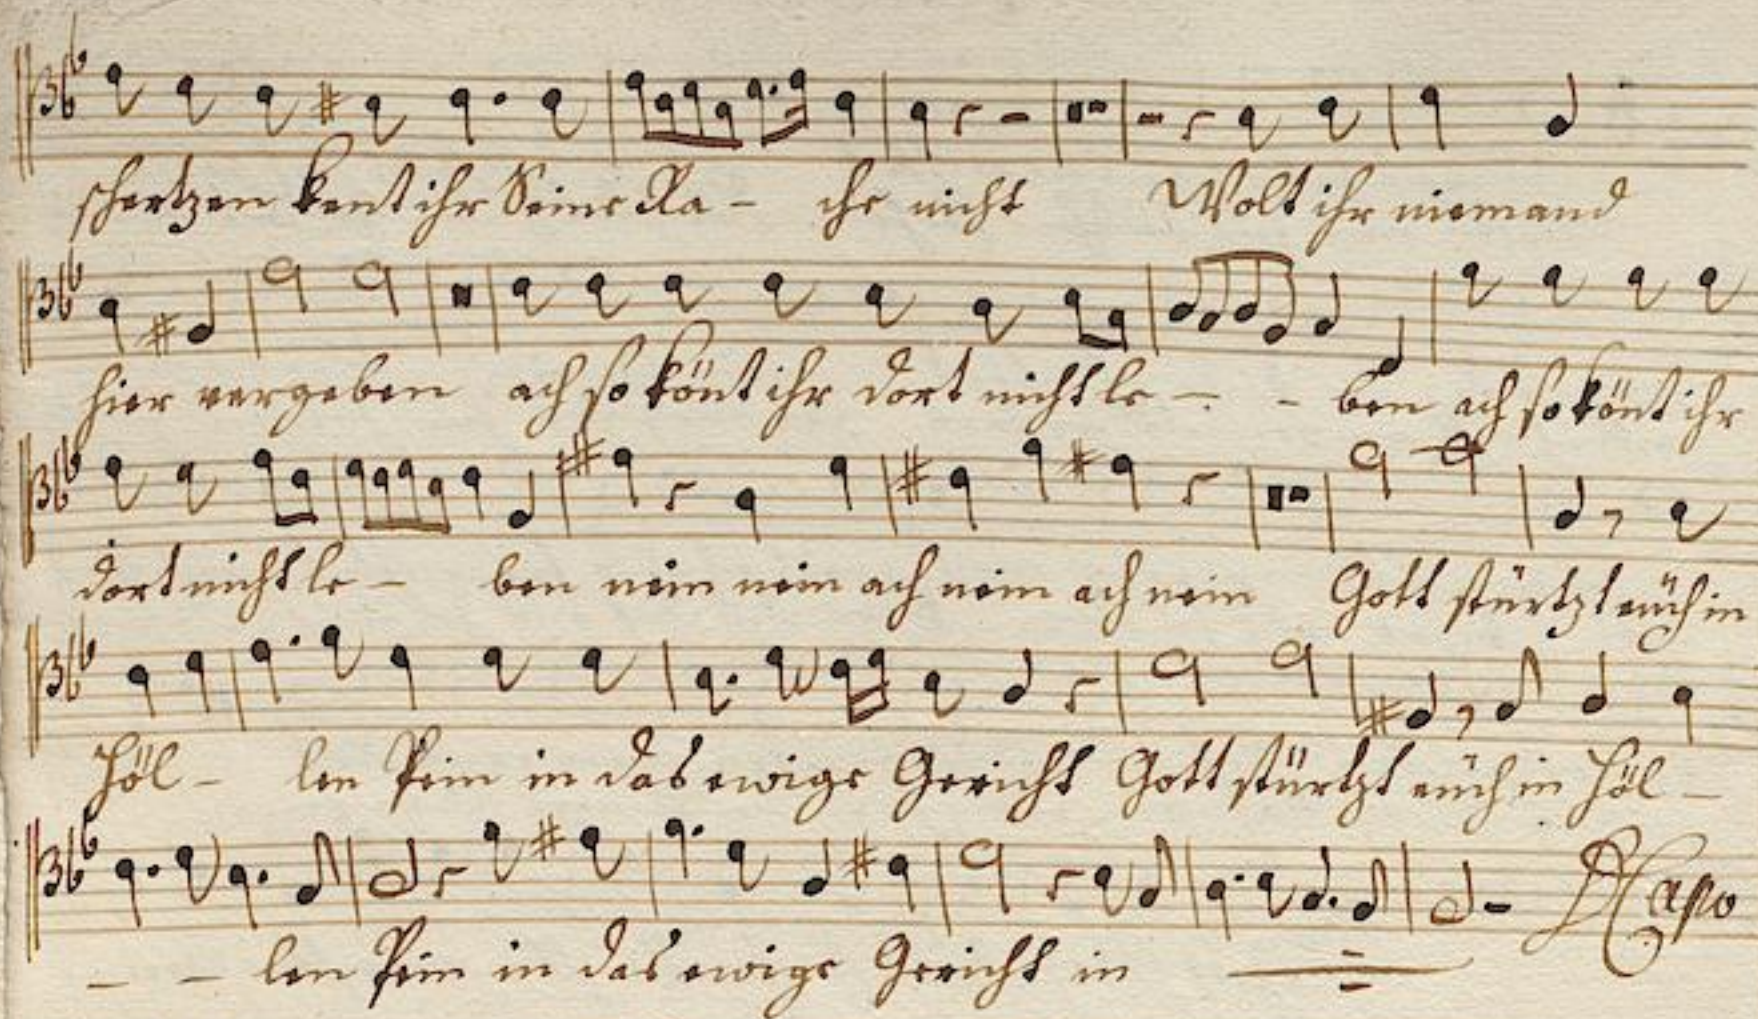 schertzen kent ihr Seine Ra - che nicht Wolt ihr niemand
hier vergeben ach so könt ihr dort nicht le - - ben ach so könt ihr
dort nicht le - ben nein nein ach nein ach nein Gott stürtzt eüch in
Höl - len Pein in das ewige Gericht Gott stürtzt eüch in Höl -
- - len Pein in das ewige Gericht in
D Capo